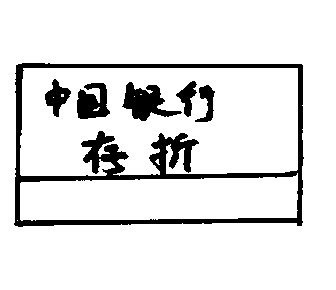 中国银行
存折